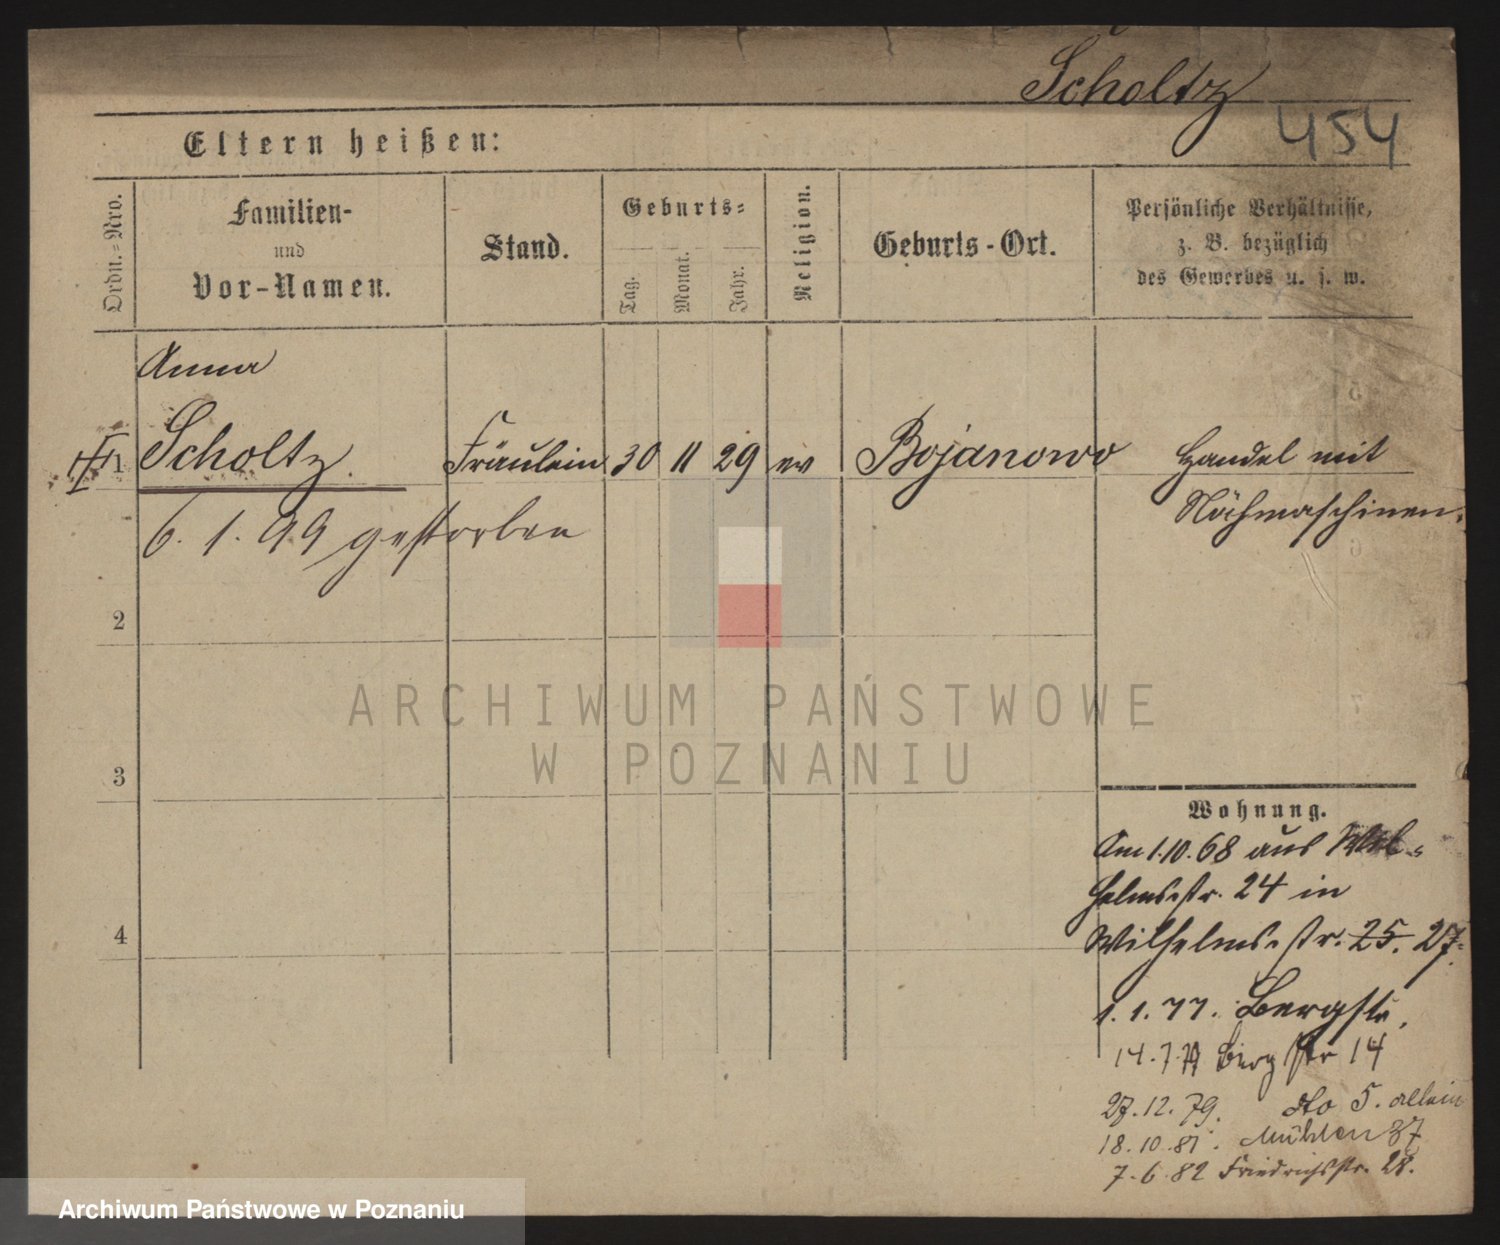 Scholtz
454
Eltern heißen:
Ordn.=Nro.
Familien-
und
Vor-Namen.
Stand.
Geburts=
Tag.
Monat.
Jahr.
Religion.
Geburts-Ort.
Persönliche Verhältnisse,
z. B. bezüglich
des Gewerbes u. s. w.
Anna
1 Scholtz. Fräulein 30 11 29 ev Bojanowo Handel mit
Nähmaschinen.
6. 1. 99 gestorben
2
3
4
Wohnung.
Am 1.10.68 aus Wil=
helmsstr. 24 in
Wilhelmsstr. 25. 27.
1. 1. 77. Bergstr.
14.7.77 Bergstr 14
27.12.79. dto 5. allein
18.10.81. Mühlen 37
7.6.82 Friedrichsstr. 28.
ARCHIWUM PAŃSTWOWE
W POZNANIU
Archiwum Państwowe w Poznaniu